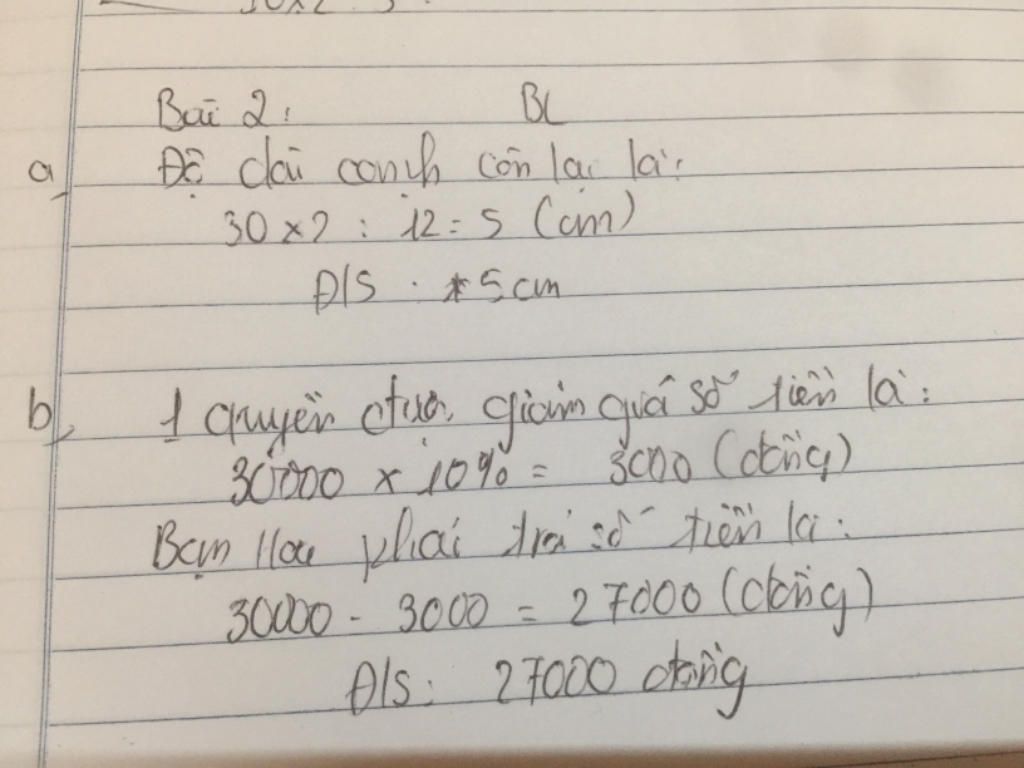 Bài 2: BL
a, Độ dài cạnh còn lại là:
30 x 2 : 12 = 5 (cm)
Đ/S : 5 cm
b, 1 quyển được giảm giá số tiền là:
30000 x 10% = 3000 (đồng)
Bạn phải trả số tiền là:
30000 - 3000 = 27000 (đồng)
Đ/S: 27000 đồng